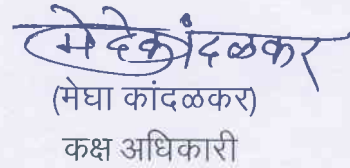 मेदेकांदळकर
(मेघा कांदळकर)
कक्ष अधिकारी